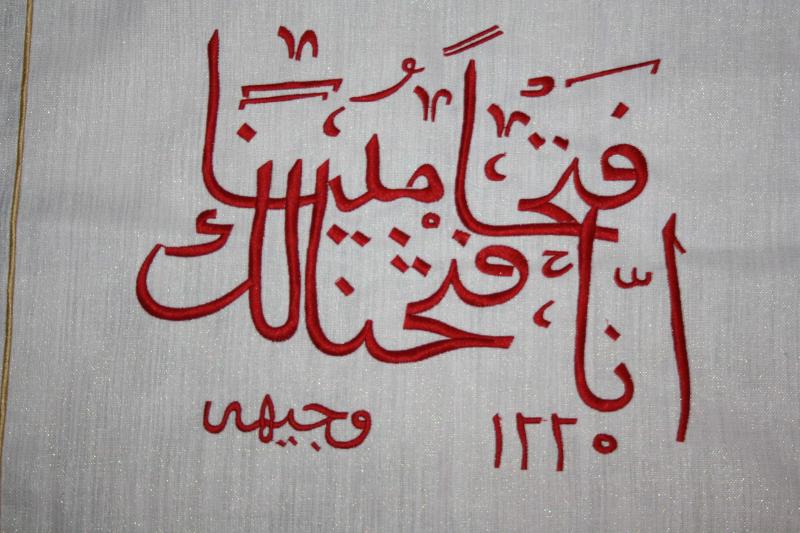 انّا فتحنا لك
فتحاً مُبينا
وجيهى ١٢٢٥